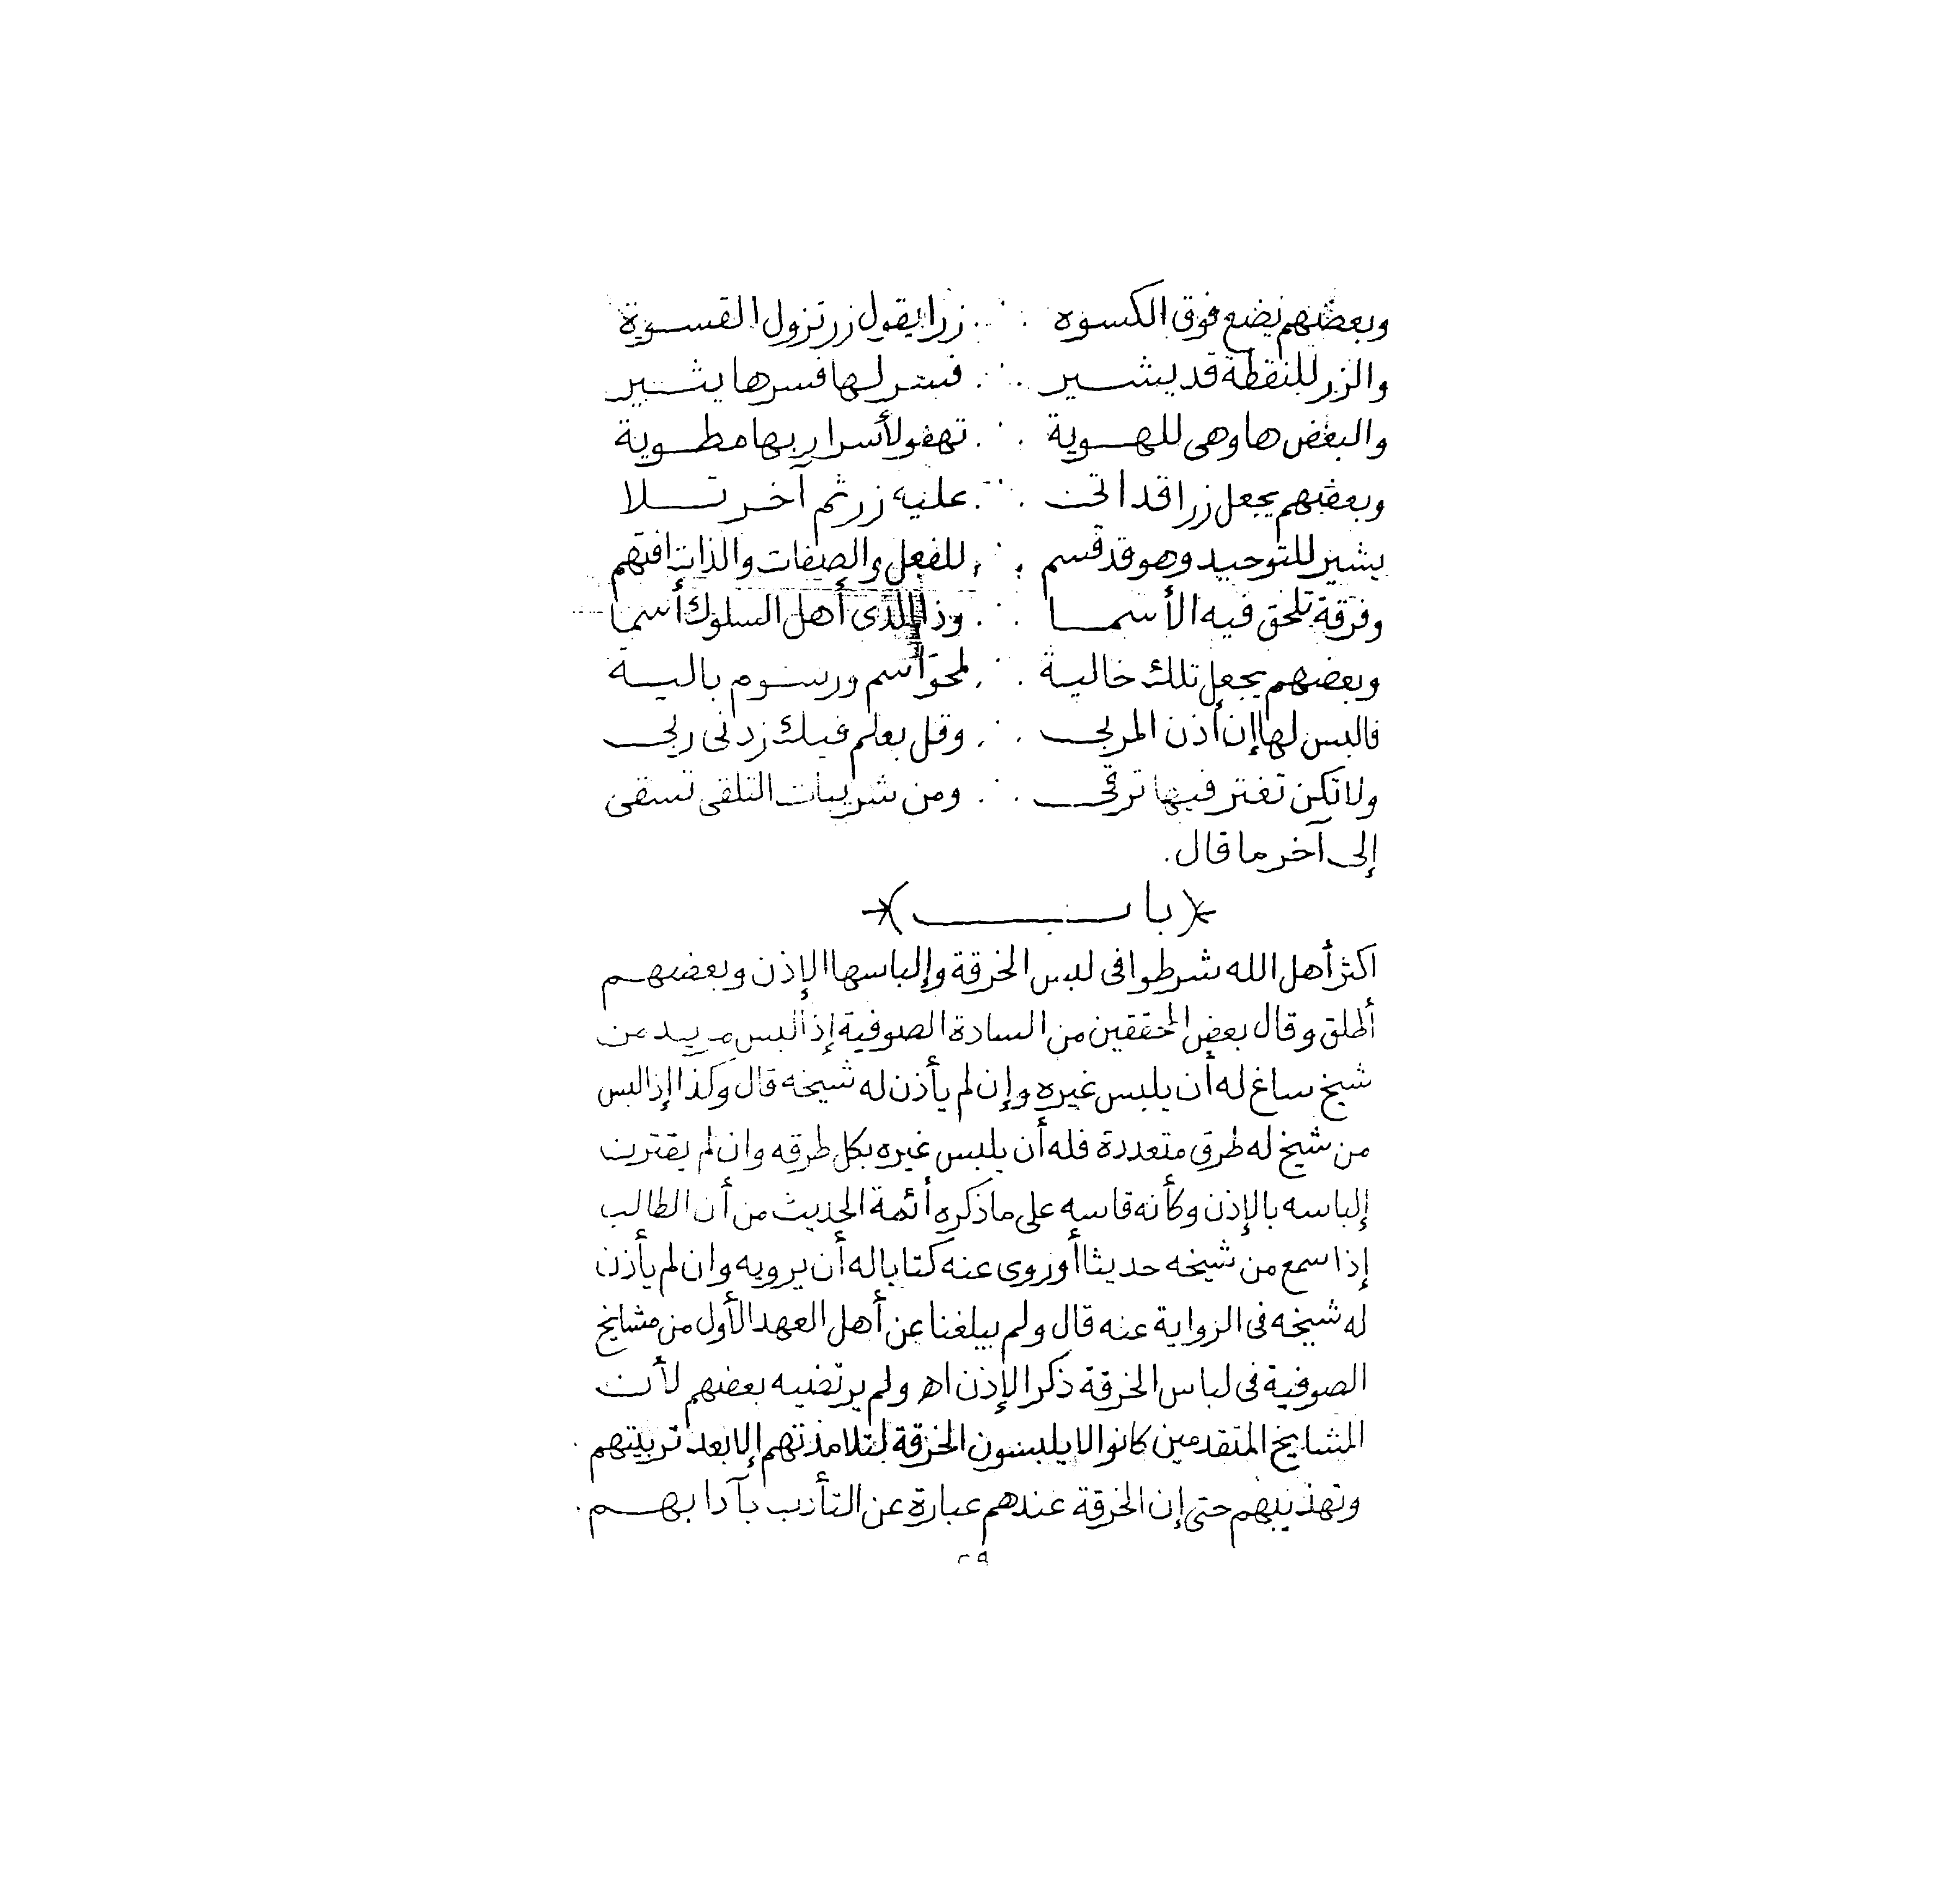 وبعضهم يضع فوق الكسوه ∴ زرا يقول زر تزول القسوة
والزر للنقطة قد يشير ∴ فسر لها فسرها يثير
والبعض ها وهى للهوية ∴ تهفو لأسرار بها مطوية
وبعضهم يجعل زرا قد اتى ∴ عليه زر ثم آخر تلا
يشير للتوحيد وهو قد قسم ∴ للفعل والصفات والذات افتهم
وفرقة تلحق فيه الأسما ∴ وذا الذى أهل السلوك أسما
وبعضهم يجعل تلك خالية ∴ لمحو اسم ورسوم بالية
فالبس لها إن أذن المربى ∴ وقل بعلم فيك زدنى ربى
ولا تكن تفتر فيها ترقى ∴ ومن شربات التلقى تسقى
إلى آخر ما قال.
(باب)
اكثر أهل الله شرطوا فى لبس الخرقة وإلباسها الإذن وبعضهم
أطلق وقال بعض المحققين من السادة الصوفية إذا لبس مريد من
شيخ ساغ له أن يلبس غيره وإن لم يأذن له شيخه قال وكذا إذا لبس
من شيخ له طرق متعددة فله أن يلبس غيره بكل طرقه وان لم يقترن
إلباسه بالإذن وكأنه قاسه على ما ذكره أئمة الحديث من أن الطالب
إذا سمع من شيخه حديثا أو روى عنه كتابا له أن يرويه وان لم يأذن
له شيخه فى الرواية عنه قال ولم يبلغنا عن أهل العهد الأول من مشايخ
الصوفية فى لباس الخرقة ذكر الإذن اه ولم يرتضيه بعضهم لأن
المشايخ المتقدمين كانوا لا يلبسون الخرقة لتلامذتهم إلا بعد تربيتهم
وتهذيبهم حتى إن الخرقة عندهم عبارة عن التأدب بآدابهم.
٢٩